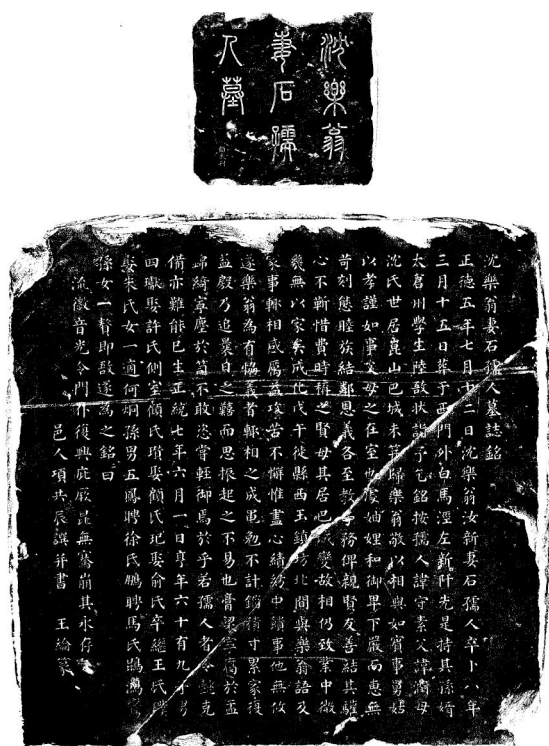 沈樂翁
妻石孺
人墓
沈樂翁妻石孺人墓誌銘
正德五年七月十二日沈樂翁汝新妻石孺人卒卜八年
三月十五日葬于西門外白馬涇左新阡先是持其孫婿
太倉州學生陸啟狀詣予乞銘按孺人諱守素父諱 母
沈氏世居鹿山巴城未笄歸樂翁敬以相與如賓事舅姑
以孝謹如事父母之在室也處妯娌和御卑下嚴而惠無
苛刻態睦族結鄰恩義各至教子務俾親賢友善結其驩
心不靳惜費時稱之賢母其居巴城變故相仍致業中微
幾無以家矣成化戊午徙縣西玉鎮坊北間與樂翁語及
家事輒相感厲益攻苦不懈惟盡心績紡中饋事他無攸
遂樂翁為有 義者輒相之成重勉不計錙銖寸累家復
益殷乃追曩日之囏而思振起之不易也膏粱 於盂
錦綺寧塵於笥不敢恣嘗輕御焉於乎若孺人者 克
備亦難能已生正統七年六月一日享年六十有九子男
四 娶許氏側室顧氏瓚娶顧氏 娶俞氏卒繼王氏
娶朱氏女一適何炯孫男五鳳聘徐氏鵬聘馬氏鵾
孫女一聟即啟遂為之銘曰
流徽音光令門作復興庇厥昆無騫崩其永存
邑人項共辰譔并書 王綸篆